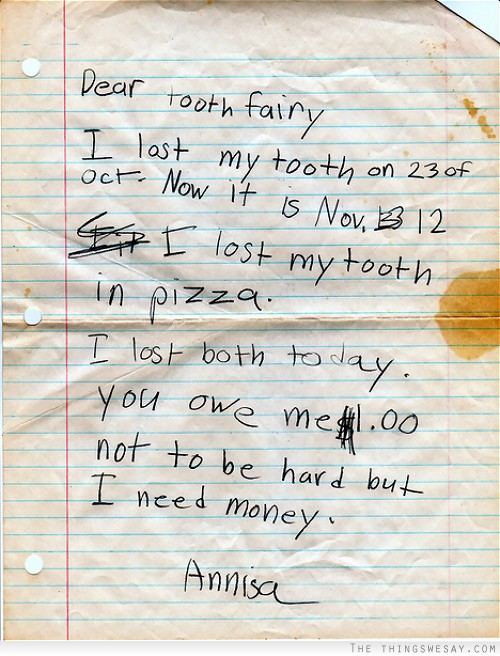 Dear tooth fairy
I lost my tooth on 23 of
oct. Now it is Nov. 12
I lost my tooth
in pizza.
I lost both today.
you owe me $1.00
not to be hard but
I need money.
Annisa
THE THINGSWESAY.COM